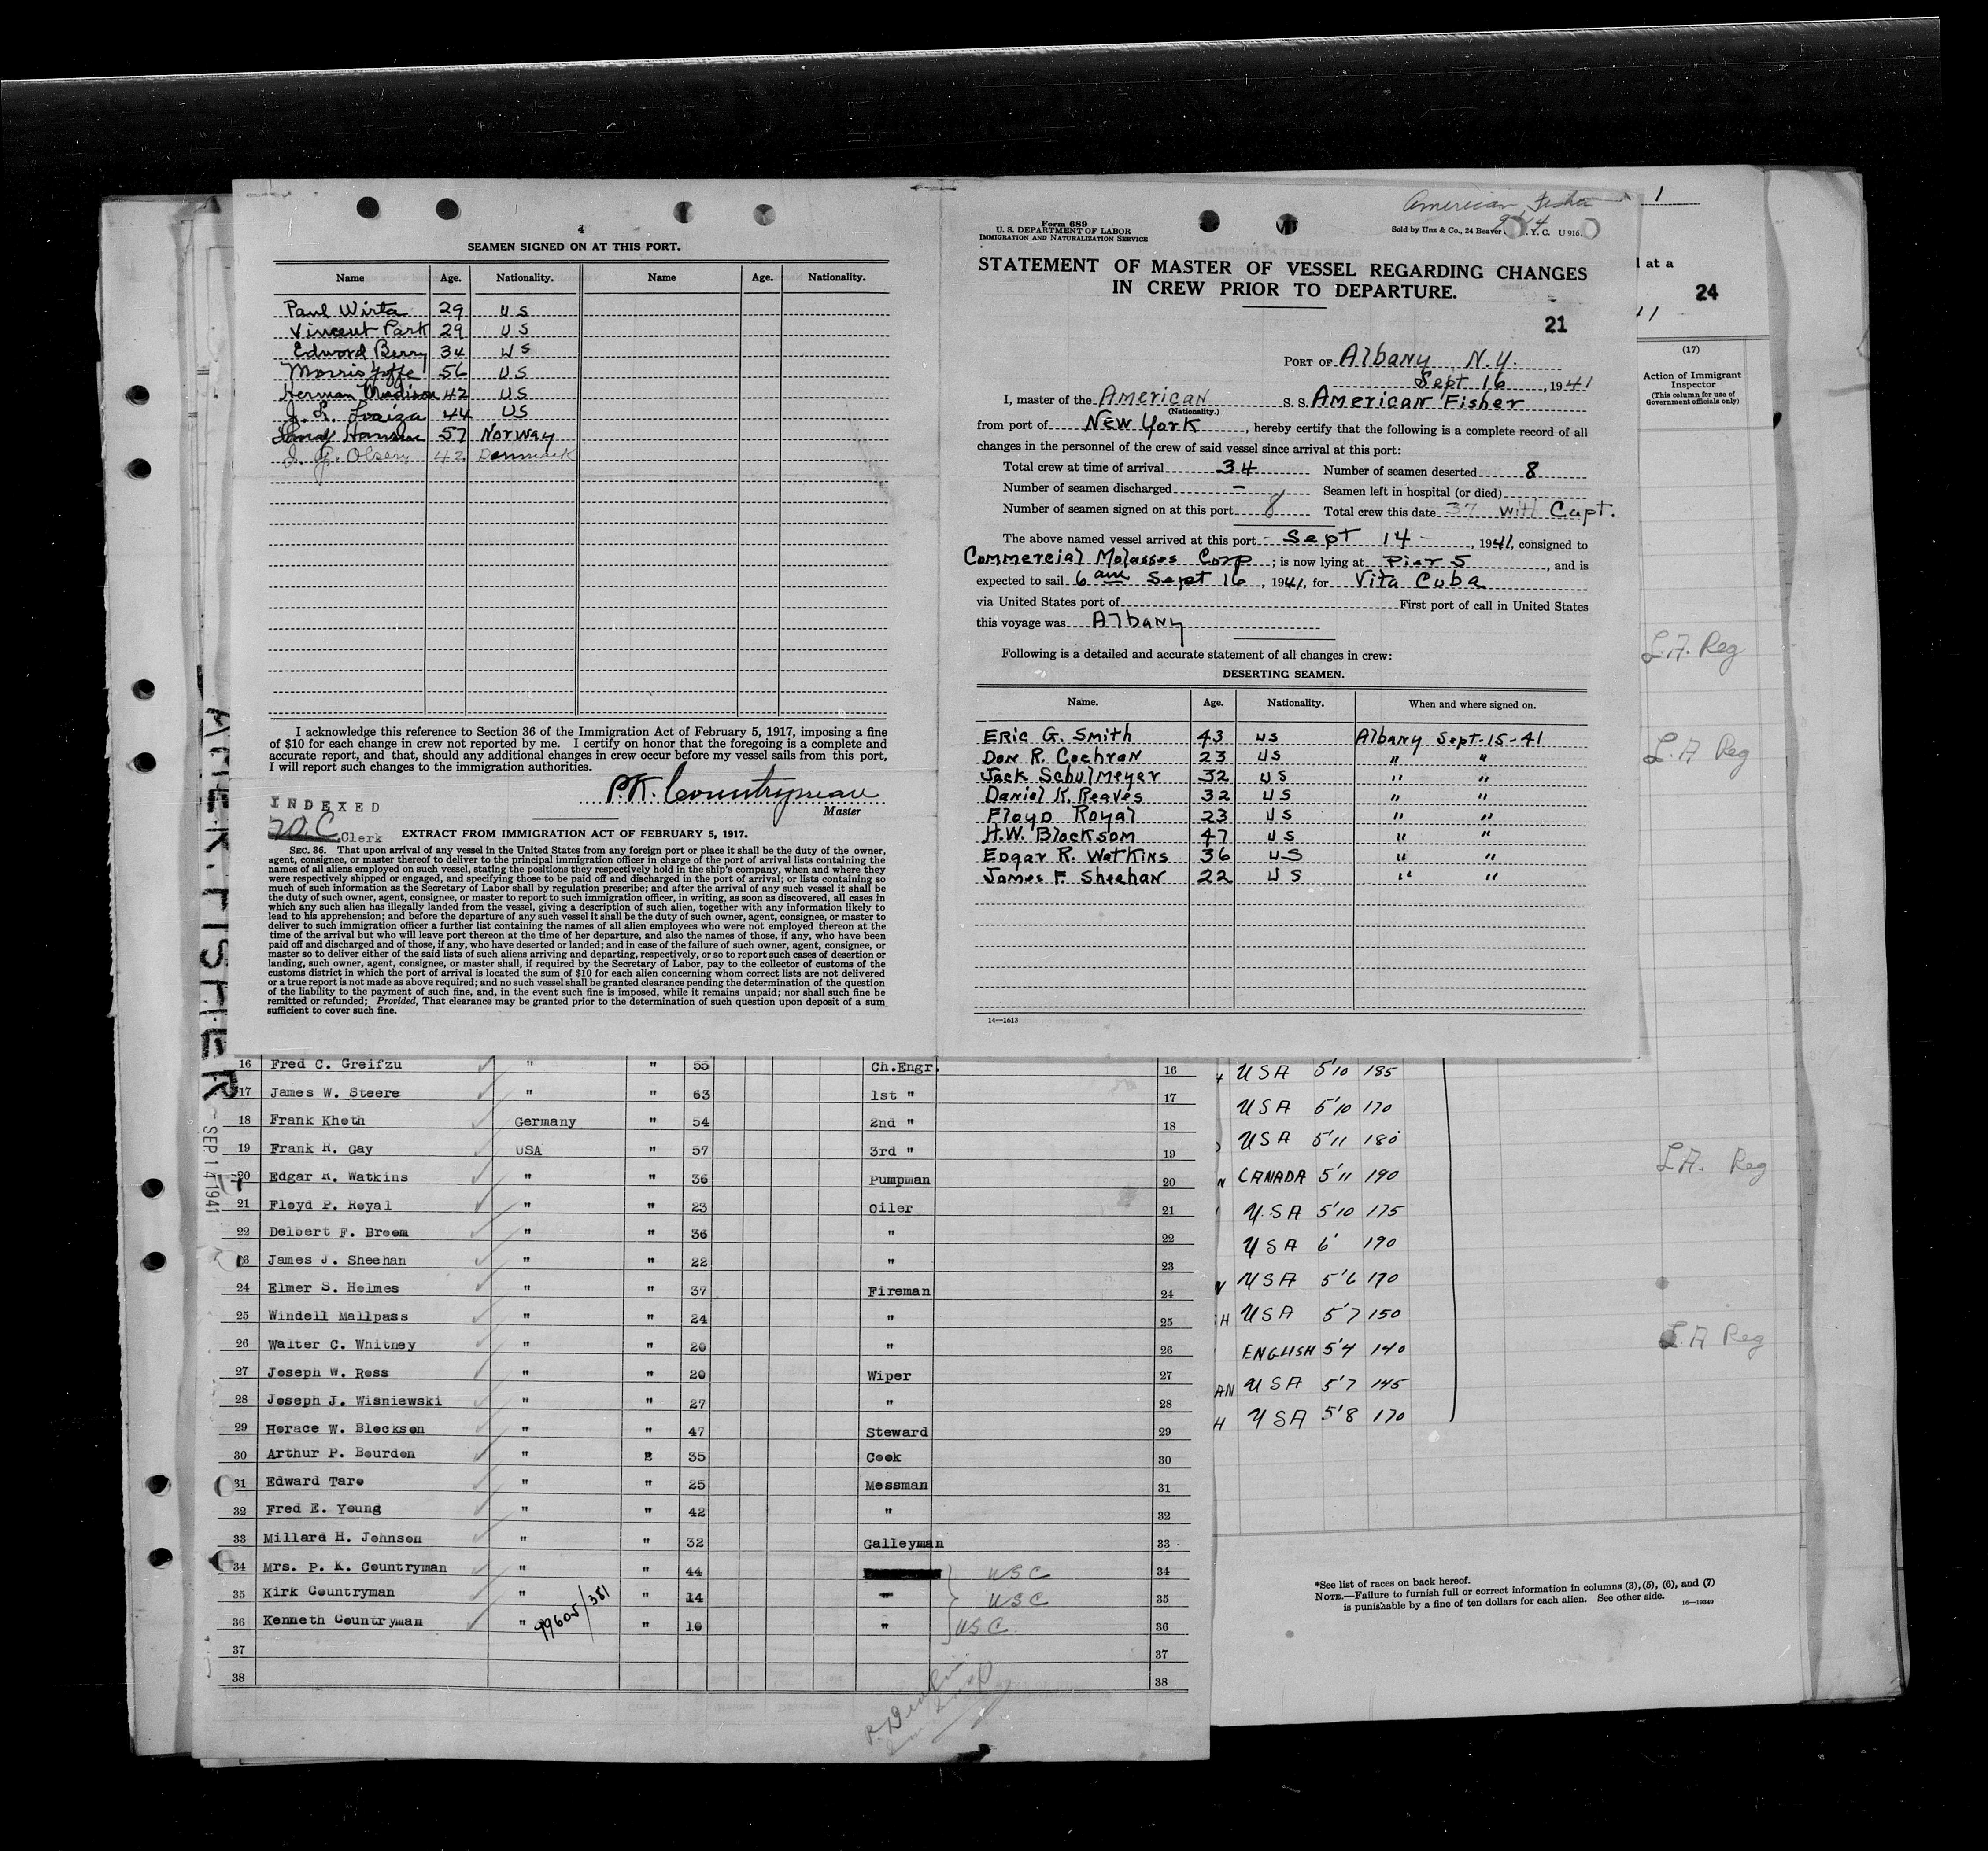 4
SEAMEN SIGNED ON AT THIS PORT.
Name Age. Nationality. Name Age. Nationality.
Paul Wirta 29 US
Vincent Park 29 US
Edward Berry 34 US
Morris Joffe 56 US
Herman Madison 42 US
J. L. Loaiza 44 US
57 Norway
Olsen 42 Denmark
I acknowledge this reference to Section 36 of the Immigration Act of February 5, 1917, imposing a fine
of $10 for each change in crew not reported by me. I certify on honor that the foregoing is a complete and
accurate report, and that, should any additional changes in crew occur before my vessel sails from this port,
I will report such changes to the immigration authorities.
P.K. Countryman
Master
INDEXED
Clerk
EXTRACT FROM IMMIGRATION ACT OF FEBRUARY 5, 1917.
SEC. 36. That upon arrival of any vessel in the United States from any foreign port or place it shall be the duty of the owner,
agent, consignee, or master thereof to deliver to the principal immigration officer in charge of the port of arrival lists containing the
names of all aliens employed on such vessel, stating the positions they respectively hold in the ship's company, when and where they
were respectively shipped or engaged, and specifying those to be paid off and discharged in the port of arrival; or lists containing so
much of such information as the Secretary of Labor shall by regulation prescribe; and after the arrival of any such vessel it shall be
the duty of such owner, agent, consignee, or master to report to such immigration officer, in writing, as soon as discovered, all cases in
which any such alien has illegally landed from the vessel, giving a description of such alien, together with any information likely to
lead to his apprehension; and before the departure of any such vessel it shall be the duty of such owner, agent, consignee, or master to
deliver to such immigration officer a further list containing the names of all alien employees who were not employed thereon at the
time of the arrival but who will leave port thereon at the time of her departure, and also the names of those, if any, who have been
paid off and discharged and of those, if any, who have deserted or landed; and in case of the failure of such owner, agent, consignee, or
master so to deliver either of the said lists of such aliens arriving and departing, respectively, or so to report such cases of desertion or
landing, such owner, agent, consignee, or master shall, if required by the Secretary of Labor, pay to the collector of customs of the
customs district in which the port of arrival is located the sum of $10 for each alien concerning whom correct lists are not delivered
or a true report is not made as above required; and no such vessel shall be granted clearance pending the determination of the question
of the liability to the payment of such fine, and, in the event such fine is imposed, while it remains unpaid; nor shall such fine be
remitted or refunded; Provided, That clearance may be granted prior to the determination of such question upon deposit of a sum
sufficient to cover such fine.
American Fisher
9/14
Form 689
U. S. DEPARTMENT OF LABOR
IMMIGRATION AND NATURALIZATION SERVICE
Sold by Unz & Co., 24 Beaver Y. C. U 916
STATEMENT OF MASTER OF VESSEL REGARDING CHANGES
IN CREW PRIOR TO DEPARTURE.
21
PORT OF Albany, N.Y.
Sept 16, 1941
I, master of the American S. S. American Fisher
(Nationality.)
from port of New York, hereby certify that the following is a complete record of all
changes in the personnel of the crew of said vessel since arrival at this port:
Total crew at time of arrival 34 Number of seamen deserted 8
Number of seamen discharged - Seamen left in hospital (or died)
Number of seamen signed on at this port 8 Total crew this date 37 with Capt.
The above named vessel arrived at this port - Sept 14 -, 1941, consigned to
Commercial Molasses Corp; is now lying at Pier 5, and is
expected to sail 6 am Sept 16, 1941, for Vita Cuba
via United States port of First port of call in United States
this voyage was Albany
Following is a detailed and accurate statement of all changes in crew:
DESERTING SEAMEN.
Name. Age. Nationality. When and where signed on.
Eric G. Smith 43 US Albany Sept-15-41
Don R. Cochran 23 US " "
Jack Schulmeyer 32 US " "
Daniel K. Reaves 32 US " "
Floyd Royal 23 US " "
H.W. Blocksom 47 US " "
Edgar R. Watkins 36 US " "
James F. Sheehan 22 US " "
14—1613
1
at a
24
11
(17)
Action of Immigrant
Inspector
(This column for use of
Government officials only)
L.A. Reg
L.A Reg
L.A. Reg
L.A Reg
FISHER
- SEP 14 1941
16 Fred C. Greifzu " " 55 Ch.Engr. 16
17 James W. Steere " " 63 1st " 17
18 Frank Kheth Germany " 54 2nd " 18
19 Frank R. Gay USA " 57 3rd " 19
20 Edgar R. Watkins " " 36 Pumpman 20
21 Floyd P. Royal " " 23 Oiler 21
22 Delbert F. Broom " " 36 " 22
23 James J. Sheehan " " 22 " 23
24 Elmer S. Holmes " " 37 Fireman 24
25 Windell Mallpass " " 24 " 25
26 Walter C. Whitney " " 20 " 26
27 Joseph W. Ross " " 20 Wiper 27
28 Joseph J. Wisniewski " " 27 " 28
29 Horace W. Blockson " " 47 Steward 29
30 Arthur P. Bourdon " 35 Cook 30
31 Edward Tare " " 25 Messman 31
32 Fred E. Young " " 42 " 32
33 Millard H. Johnson " " 32 Galleyman 33
34 Mrs. P. K. Countryman " " 44 USC 34
35 Kirk Countryman " " 14 " USC 35
36 Kenneth Countryman " " 10 " USC 36
37 37
38 38
99605/381
USA 5'10 185
USA 5'10 170
USA 5'11 180
N CANADA 5'11 190
U.SA 5'10 175
USA 6' 190
USA 5'6 170
H USA 5'7 150
ENGLISH 5'4 140
AN USA 5'7 145
H USA 5'8 170
*See list of races on back hereof.
NOTE.—Failure to furnish full or correct information in columns (3), (5), (6), and (7)
is punishable by a fine of ten dollars for each alien. See other side. 16—19349